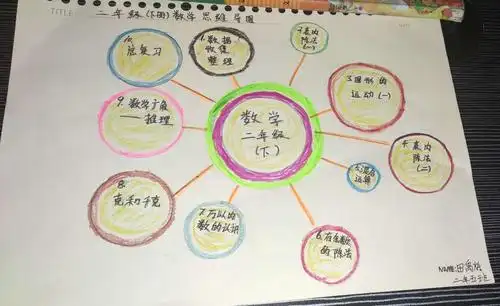 TITLE 二年级(下册)数学思维导图
数学
二年级
(下)
1.数据
收集
整理
2.表内
除法
(一)
3.图形的
运动(一)
4.表内
除法
(二)
5.混合
运算
6.有余数
的除法
7.万以内
数的认识
8.
克和千克
9.数学广角
——推理
10.
总复习
NAME:田禹
二年五班